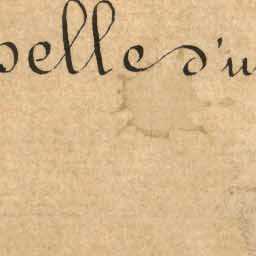 pelle d'u